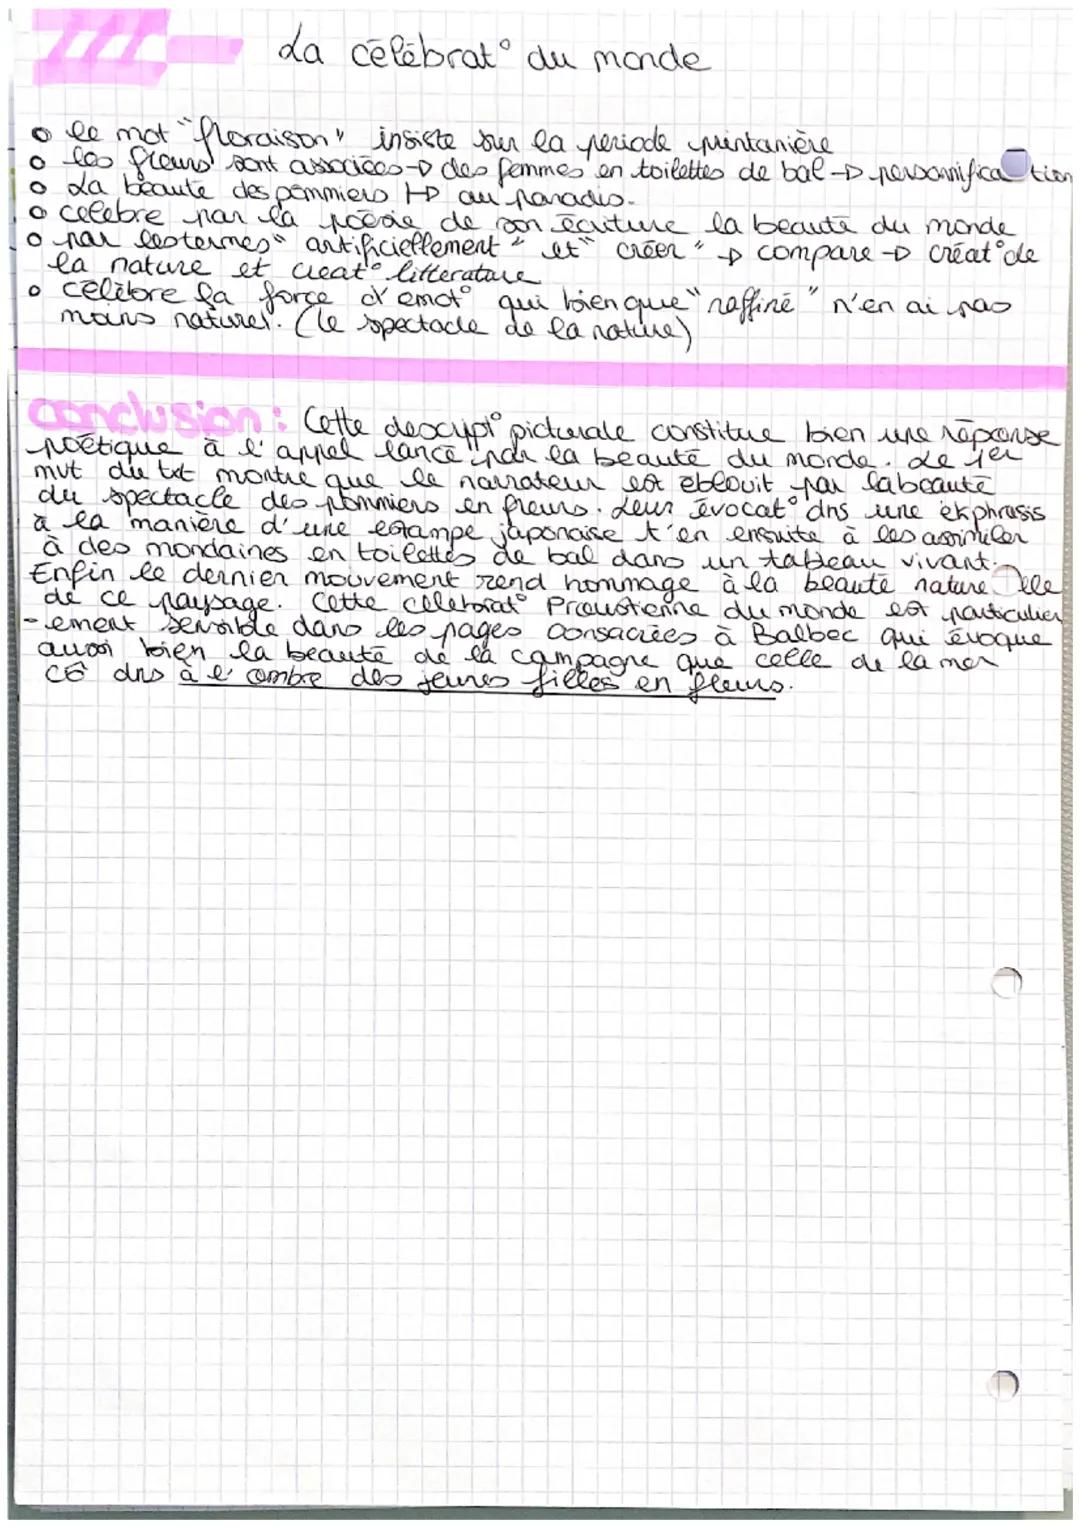 III- La célébrat° du monde
o le mot "floraison" insiste sur la periode printanière
o les fleurs sont associées → des femmes en toilettes de bal → personnification
o La beaute des pommiers → au paradis.
o celebre par la poésie de son écriture la beauté du monde
o par lestermes "artificiellement" et "créer" → compare → créat° de
la nature et creat° litterature
o celèbre la force d'emot° qui bien que "raffiné" n'en ai pas
moins naturel. (le spectacle de la nature)
conclusion : Cette descript° picturale constitue bien une réponse
poètique à l'appel lancé par la beauté du monde. Le 1er
mvt du txt montre que le narrateur est eblouit par la beauté
du spectacle des pommiers en fleurs. Leur évocat° dns une ekphrasis
à la manière d'une estampe japonaise t'en ensuite à les assimiler
à des mondaines en toilettes de bal dans un tableau vivant.
Enfin le dernier mouvement rend hommage à la beauté naturelle
de ce paysage. Cette celebrat° Proustienne du monde est particulier
-ement sensible dans les pages consacrées à Balbec qui évoque
aussi bien la beauté de la campagne que celle de la mer
cê dns à l'ombre des jeunes filles en fleurs.